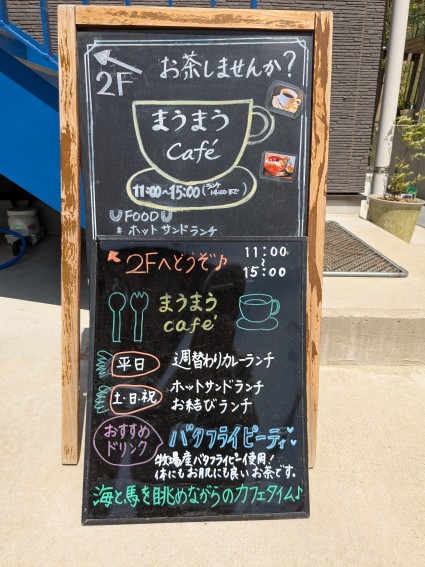 お茶しませんか?
2F
まうまう
Café
11:00~15:00(ランチ14:00まで)
FOOD
* ホットサンドランチ
2Fへどうぞ♪
11:00
~
15:00
まうまう
café
平日
週替わりカレーランチ
土・日・祝
ホットサンドランチ
お結びランチ
おすすめ
ドリンク
バタフライピーティ
牧場産バタフライピー使用!
体にもお肌にも良いお茶です。
海と馬を眺めながらのカフェタイム♪